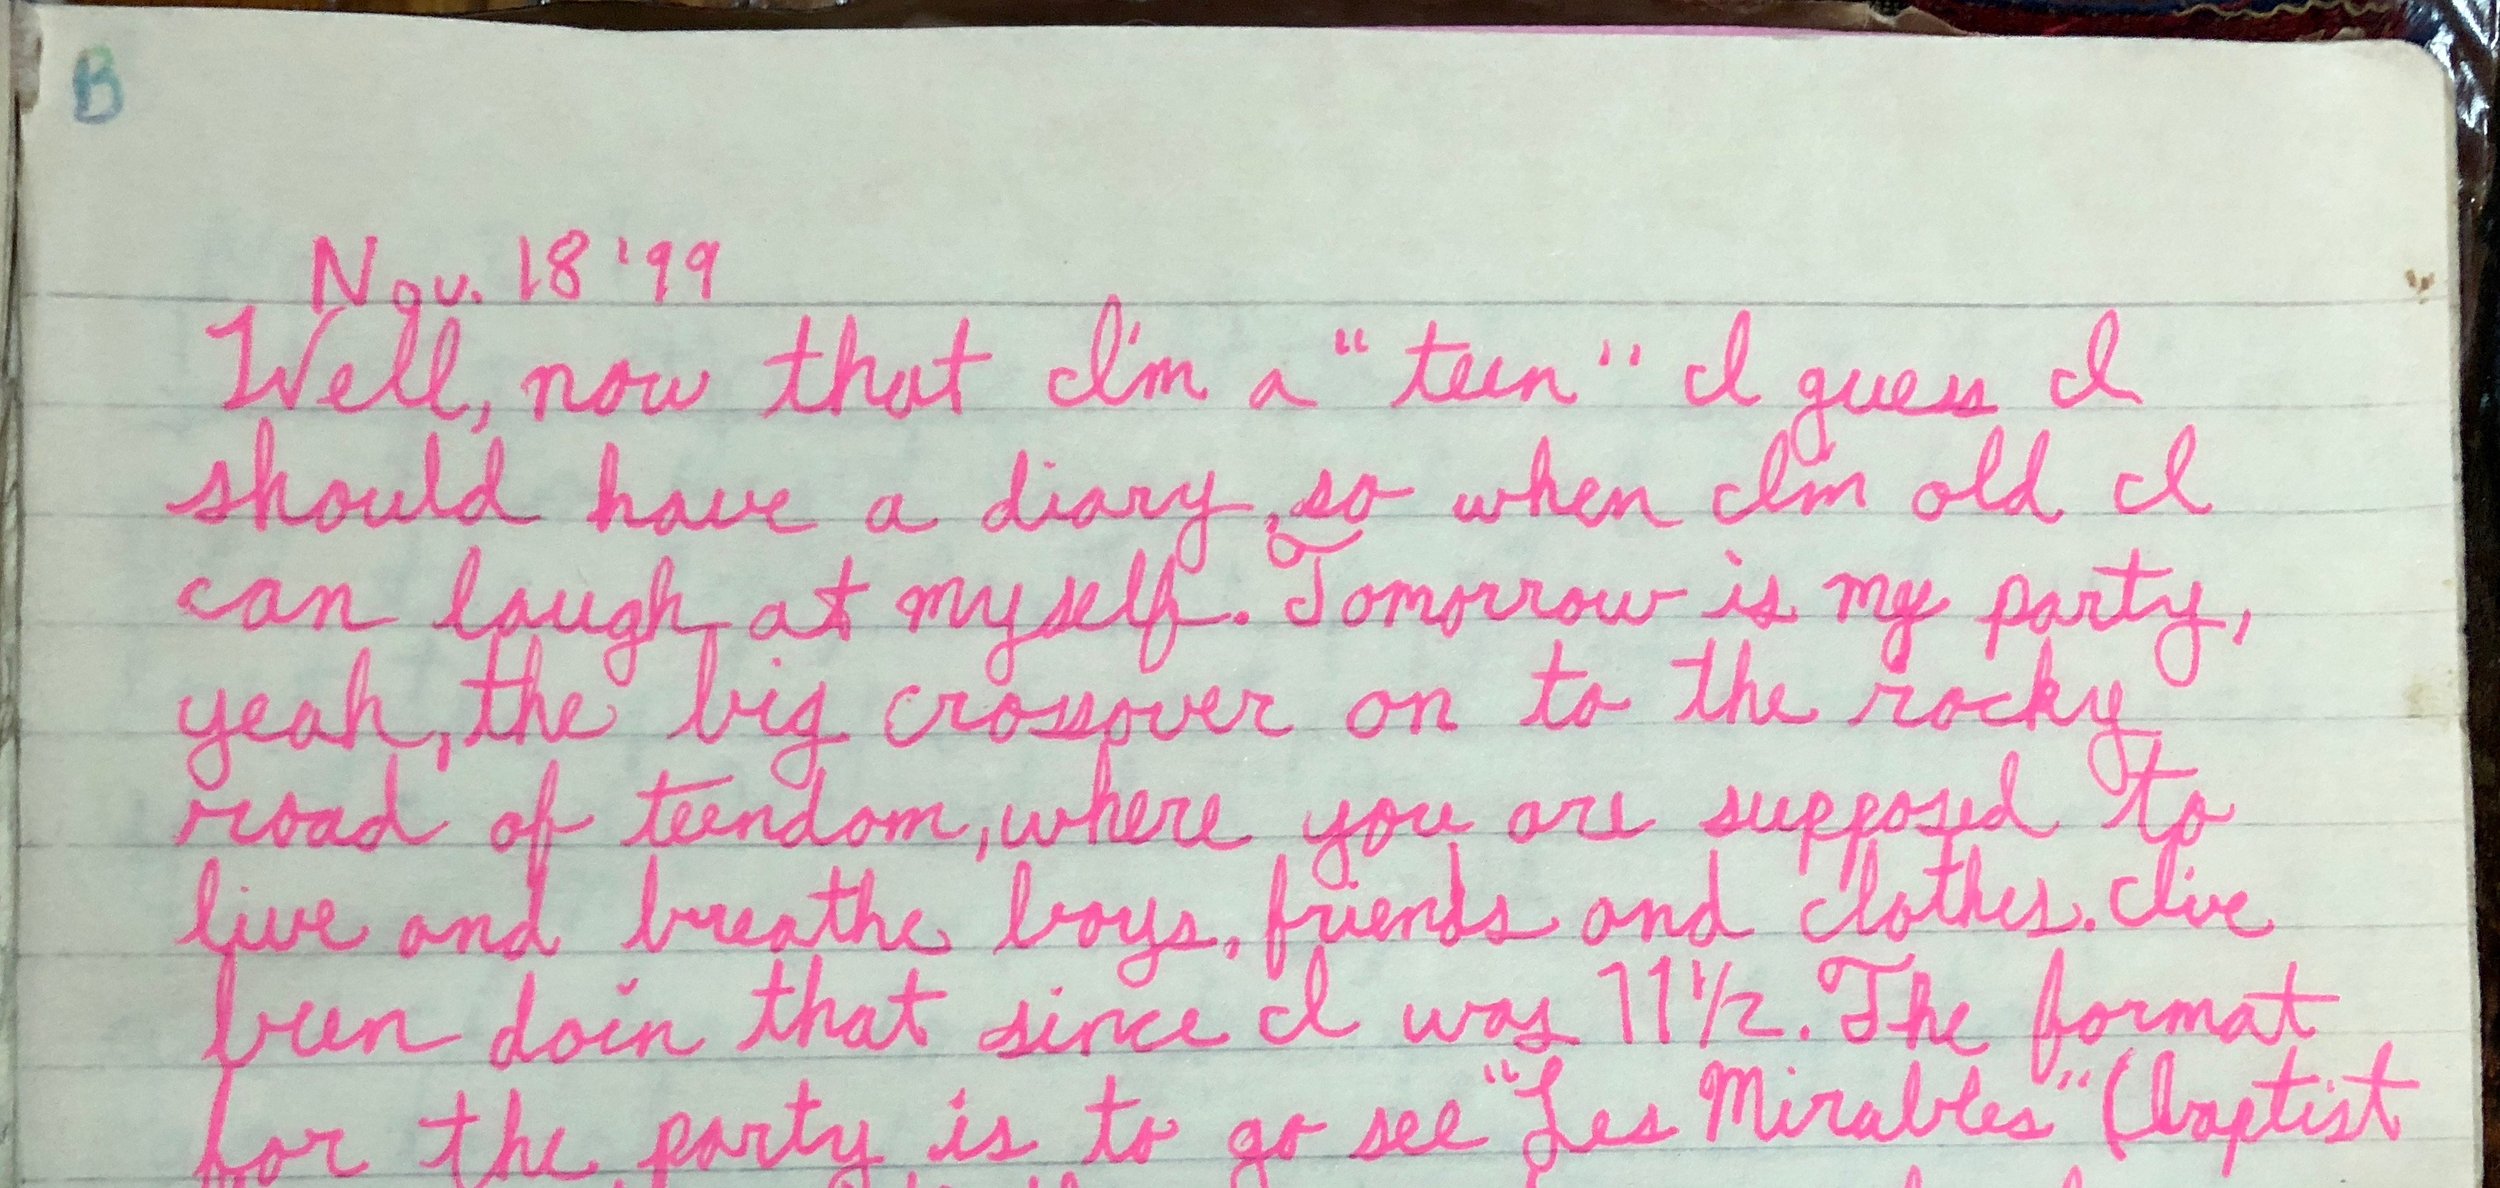 B
Nov. 18 '99
Well, now that I'm a "teen" I guess I
should have a diary, so when I'm old I
can laugh at myself. Tomorrow is my party,
yeah, the big crossover on to the rocky
road of teendom, where you are supposed to
live and breathe boys, friends and clothes. I've
been doin that since I was 11 1/2. The format
for the party is to go see "Les Mirables" (baptist